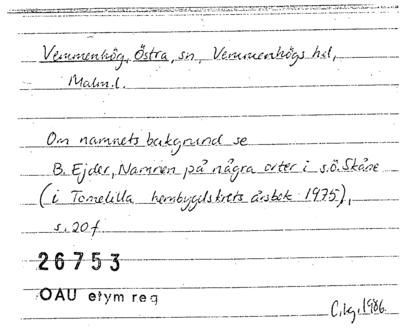 Vemmenhög, Östra, sn, Vemmenhögs hd,
Malm.l.
Om namnets bakgrund se
B. Ejder, Namnen på några orter i s.ö. Skåne
(i Tomelilla hembygdskrets årsbok 1975),
s. 20 f.
26753
OAU etym reg
1986